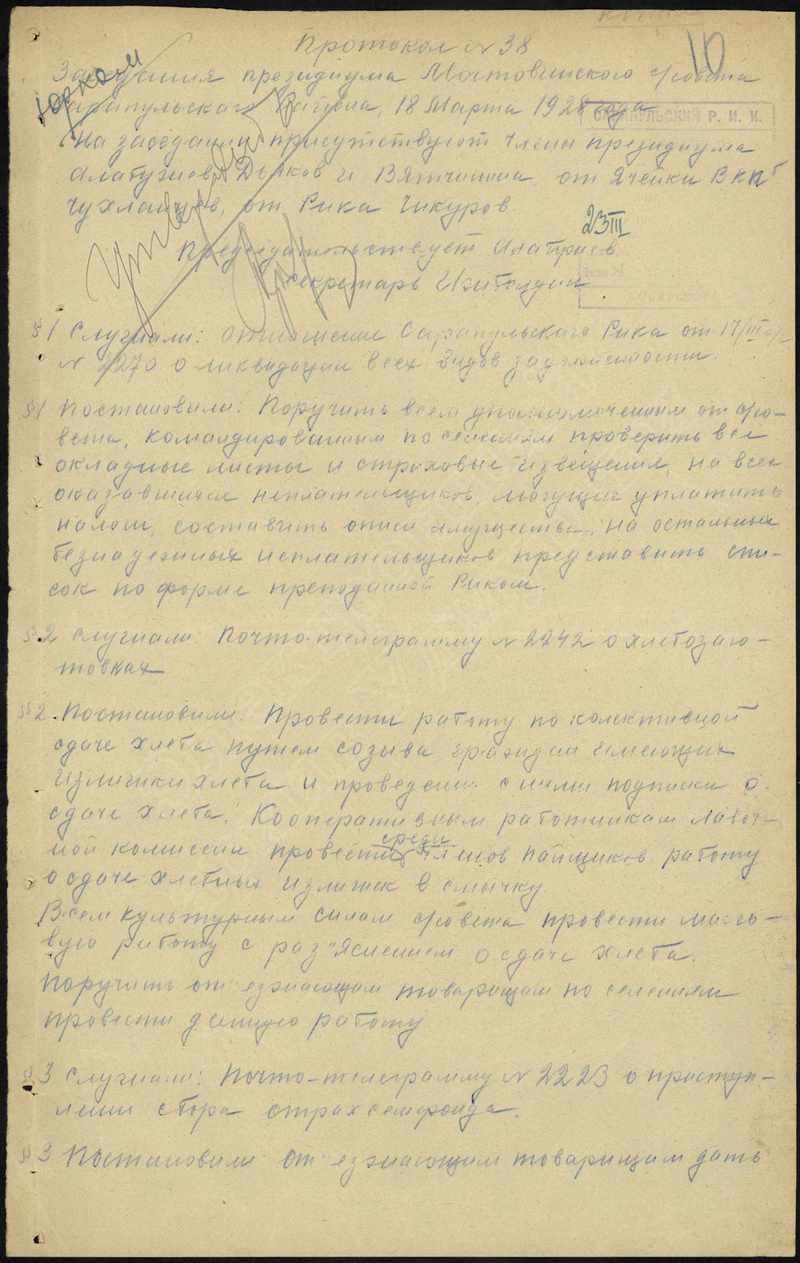 10
Протокол № 38
Заседания президиума Мостовинского с/совета
Сарапульского Района, 18 Марта 1928 года
САРАПУЛЬСКИЙ Р. И. К.
На заседании присутствуют Члени президиума
Дьяков и Вятчинина от Ячейки ВКПб
от Рика Чикуров
23/III
Председательствует
Секретарь
§1 Слушали: отношение Сарапульского Рика от 17/III
№ о ликвидации всех видов задолженности.
§1 Постановили: Поручить всем уполномоченным от с/со-
вета, командированным по селениям проверить все
окладные листы и страховые извещения, на всех
оказавшихся неплательщиков, могущих уплатить
налог, составить описи имущества, на остальных
безнадежных неплательщиков представить спи-
сок по форме преподанной Риком.
§2 Слушали Почто-телеграмму № 2242 о хлебозаго-
товках
§2. Постановили: Провести работу по колективной
сдаче хлеба путем созыва граждан имеющих
излишки хлеба и проведени с ними подписки о
сдаче хлеба. Кооперативным работникам Лавоч-
ной комиссии провести среди членов пайщиков работу
о сдаче хлебных излишек в смычку
Всем культурным силам с/совета провести массо-
вую работу с раз"яснением о сдаче хлеба.
Поручить от"езжающим товарищам по селениям
провести данную работу
§3 Слушали: Почто-телеграмму № 2223 о приступ-
лении сбора страхсемфонда.
§3 Постановили от"езжающим товарищам дать